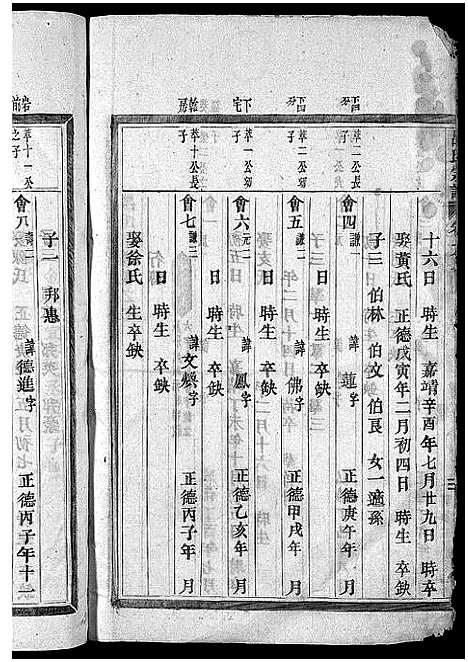 十六日 時生 嘉靖辛酉年七月廿九日 時卒
娶黃氏 正德戊寅年二月初四日 時生 卒缺
子三 伯林 伯文 伯良 女一適孫
萃二公長子
會四 謙一 諱蓮字 正德庚午年 月
日 時生 卒缺
萃二公幼子
會五 謙二 諱佛字 正德甲戌年 月
日 時生 卒缺
下宅
萃一公幼子
會六 元二 諱鳳字 正德乙亥年 月
日 時生 卒缺
萃十公長子
會七 謙三 諱文懷字 正德丙子年 月
日 時生 卒缺
娶徐氏 生卒缺
子一 邦惠
岩前
萃十一公之子
會八 諱德進字 正德丙子年十二